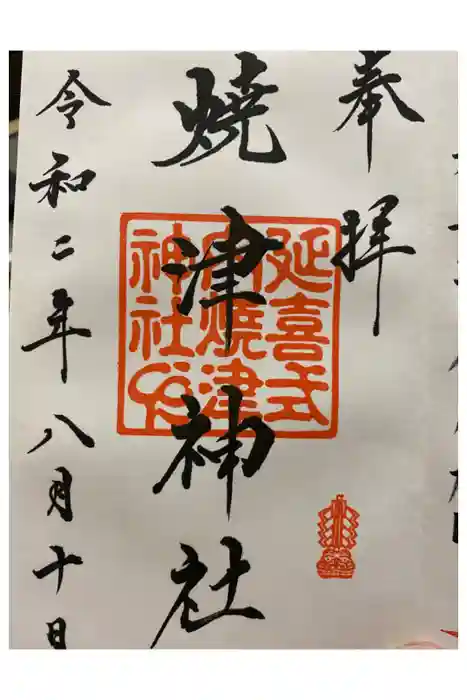 奉拝
延喜式
内焼津
神社印
焼津神社
令和二年八月十日